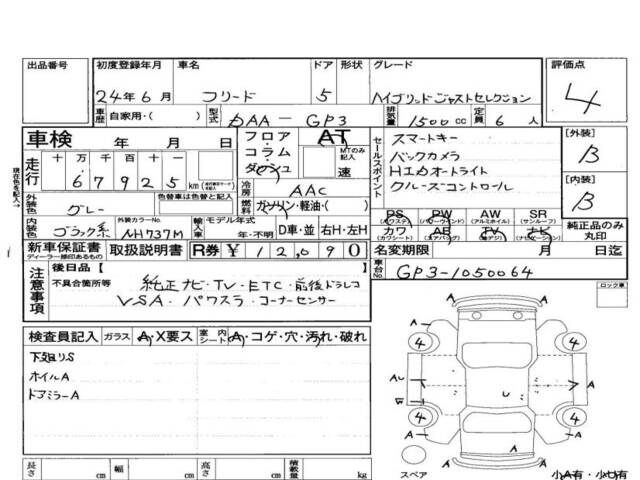 出品番号 初度登録年月 車名 ドア 形状 グレード 評価点
24年6月 フリード 5 ハイブリッドジャストセレクション 4
車歴 自家用・( ) 型式 DAA－GP3 排気量 1500cc 定員 6人
車検 年 月 日 フロア・コラム・ダッシュ AT MTのみ記入 速
セールスポイント スマートキー
バックカメラ
HIDオートライト
クルーズコントロール
[外装] B
[内装] B
現在色を記入→
走行 十万 千百十 67925 km
冷房 AAC
外装色 グレー 色替車は色替と記入 燃料 ガソリン・軽油・( )
内装色 ブラック系 外装カラーNo. NH737M 輸入車 モデル年式 年・不明 D車・並 右H・左H
PS (パワステ) PW (パワーウインド) AW (アルミホイール) SR (サンルーフ)
カワ (カワシート) AB (エアバッグ) TV (TV) ナビ (ナビゲーション)
純正品のみ丸印
新車保証書 ディーラー捺印あるもの 取扱説明書 R券 ￥12,090 名変期限 月 日迄
注意事項 後日品【 】
不具合箇所等 純正ナビ・TV・ETC・前後ドラレコ
VSA・パワスラ・コーナーセンサー
車台No. GP3-1050064
ロック車
検査員記入 ガラス A・X要ス 室内シート A・コゲ・穴・汚れ・破れ
下廻りS
ホイルA
ドアミラーA
A A
4 4
A A
A A
4 4
A A
U
スペア
長さ cm 幅 cm 高さ cm 積載量 kg
小A有・小U有